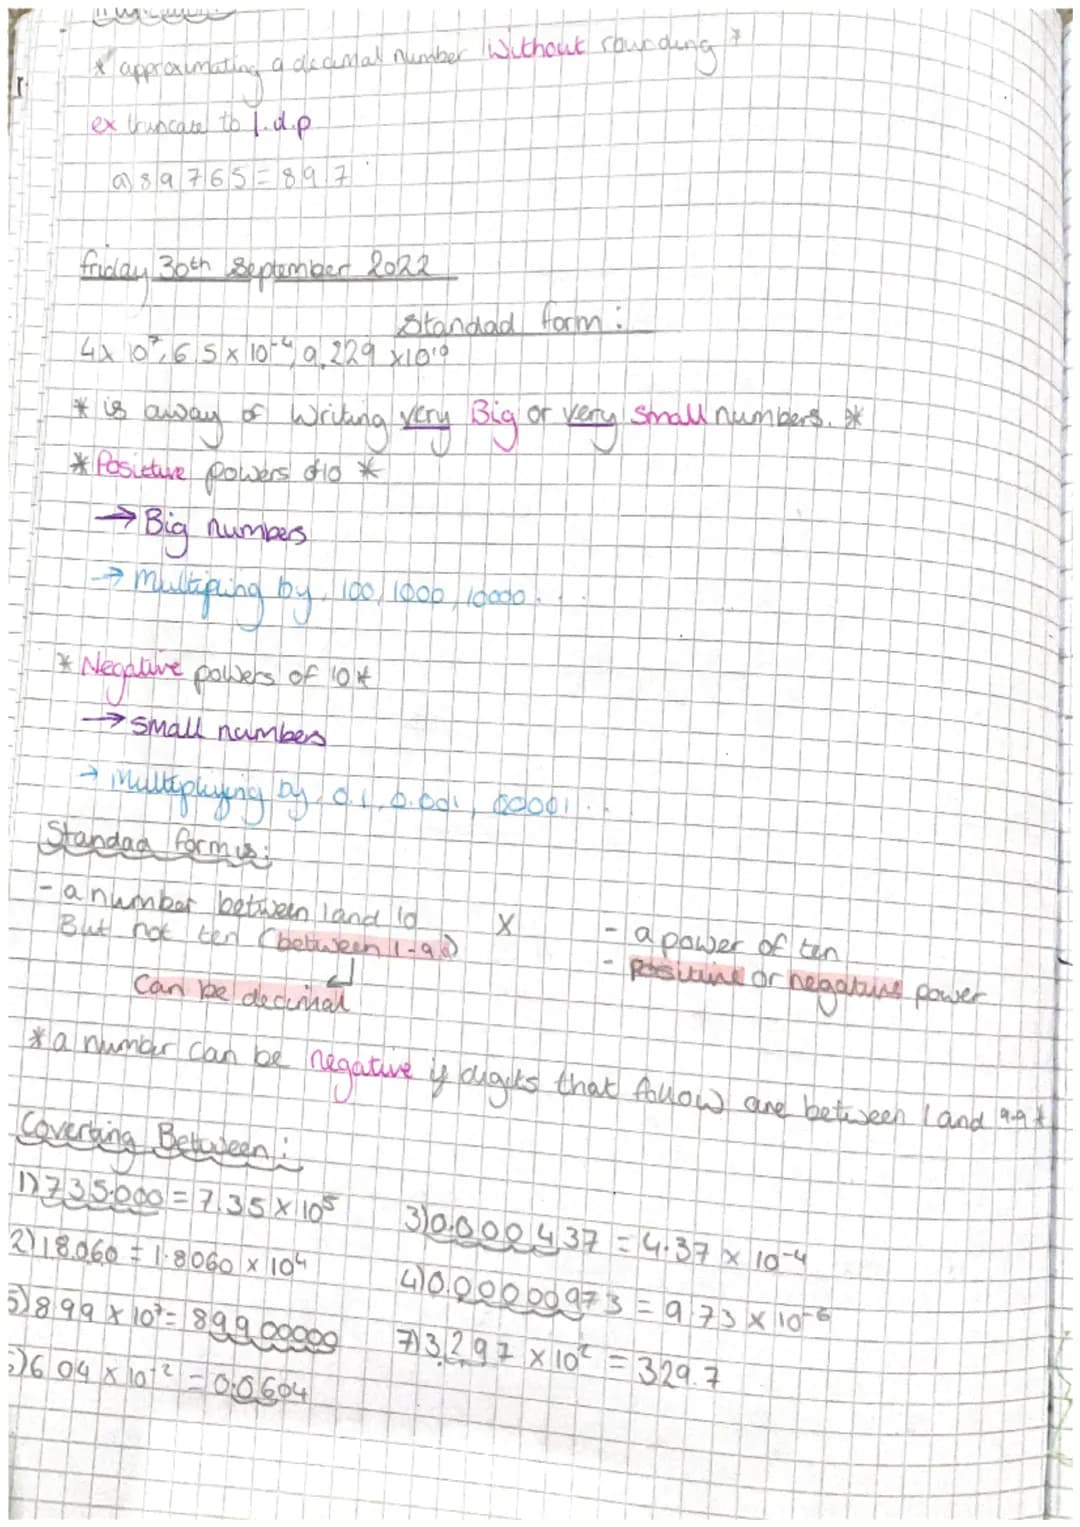 * approximating a decimal number Without rounding *
ex truncate to 1.d.p
a) 89765 = 897
friday 30th September 2022
Standad form :
4x 10⁷, 6.5 x 10⁻⁴, 9.229 x10¹⁰
* is away of Writing very Big or very Small numbers. *
* Posietive powers of 10 *
→ Big numbers
→ multipling by, 100, 1000, 10000 . . .
* Negative powers of 10 *
→ small numbers
→ Multiplying by, 0.1, 0.001, 00001 . . .
Standad form is :
- a number between 1 and 10
But not ten (between 1-9.9)
Can be decimal
X
- a power of ten
- positive or negative power
* a number can be negative if digits that follow are between 1 and 9.9 *
Coverting Between :
1) 735000 = 7.35 x 10⁵
3) 0.000437 = 4.37 x 10⁻⁴
2) 18060 = 1.8060 x 10⁴
4) 0.00000973 = 9.73 x 10⁻⁶
5) 8.99 x 10⁷ = 89900000
7) 3.297 x 10² = 329.7
6.04 x 10⁻² = 0.0604